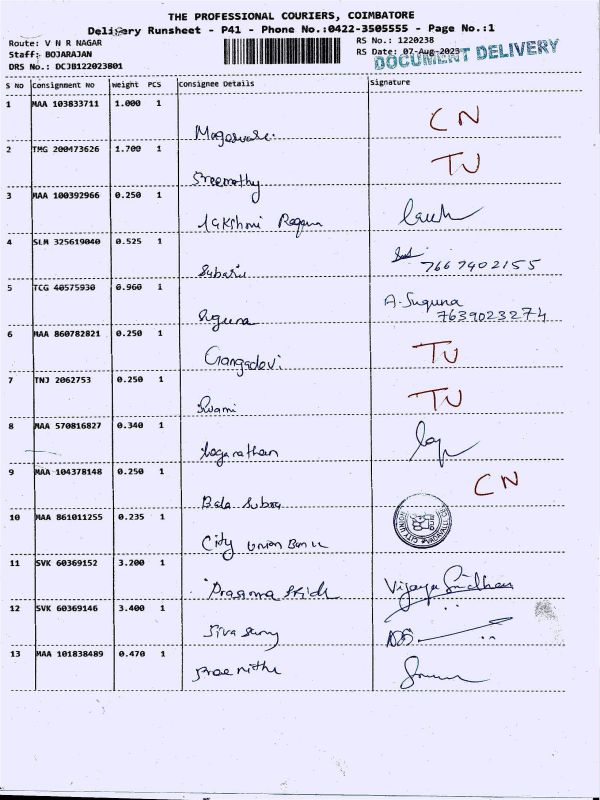 THE PROFESSIONAL COURIERS, COIMBATORE
Delivery Runsheet - P41 - Phone No.:0422-3505555 - Page No.:1
Route: V N R NAGAR
Staff: BOJARAJAN
DRS No.: DCJB122023801
RS No.: 1220238
RS Date: 07-Aug-2023
DOCUMENT DELIVERY
S No Consignment No Weight PCS Consignee Details Signature
1 MAA 103833711 1.000 1 CN
2 TMG 200473626 1.700 1 Sreemathy TU
3 MAA 100392966 0.250 1 Lakshmi
4 SLM 325619040 0.525 1 7667902155
5 TCG 40575930 0.960 1 Suguna A. Suguna 7639023274
6 MAA 860782821 0.250 1 Gangadevi TU
7 TNJ 2062753 0.250 1 Swami TU
8 MAA 570816827 0.340 1 Loganathan
9 MAA 104378148 0.250 1 Bala Subra CN
10 MAA 861011255 0.235 1 City Union Bank
11 SVK 60369152 3.200 1 Vijaya Sridhar
12 SVK 60369146 3.400 1 Siva Samy
13 MAA 101838489 0.470 1